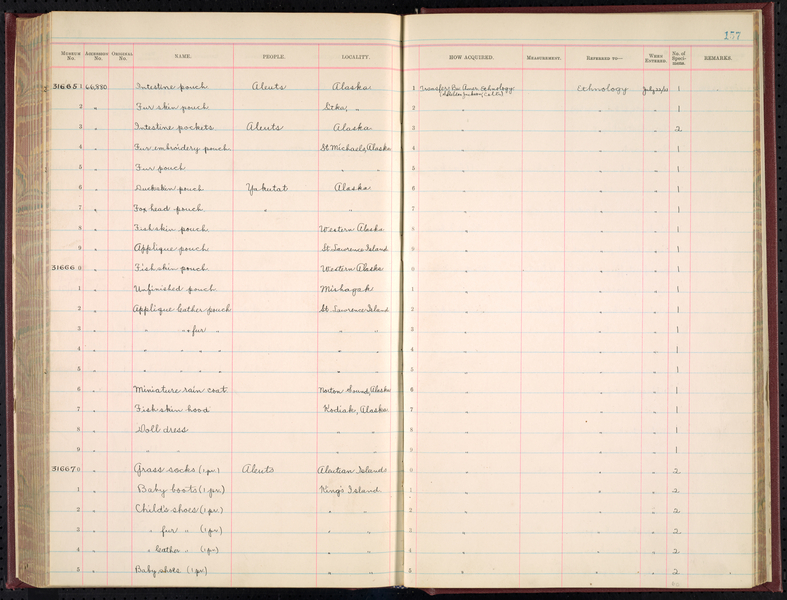 157
Museum No. Accession No. Original No. NAME. PEOPLE. LOCALITY. HOW ACQUIRED. MEASUREMENT. REFERRED TO— WHEN ENTERED. No. of Specimens. REMARKS.
316651 66,880 Intestine pouch Aleuts Alaska 1 Transfer Bu Amer Ethnology Ethnology 1
2 " Fur skin pouch Sitka, " 2 " " " 1
3 " Intestine pockets Aleuts Alaska 3 " " " 2
4 " Fur embroidery pouch St Michaels, Alaska 4 " " " 1
5 " Fur pouch " " 5 " " " 1
6 " Duckskin pouch Yakutat Alaska 6 " " " 1
7 " Fox head pouch " " 7 " " " 1
8 " Fish skin pouch Western Alaska 8 " " " 1
9 " Applique pouch St Lawrence Island 9 " " " 1
316660 " Fish skin pouch Western Alaska 0 " " " 1
1 " Unfinished pouch 1 " " " 1
2 " Applique leather pouch St Lawrence Island 2 " " " 1
3 " " " fur " " " 3 " " " 1
4 " " " " " " " 4 " " " 1
5 " " " " " " " 5 " " " 1
6 " Miniature rain coat Norton Sound, Alaska 6 " " " 1
7 " Fish skin hood Kodiak, Alaska 7 " " " 1
8 " Doll dress " " 8 " " " 1
9 " " " " " 9 " " " 1
316670 " Grass socks (1 pr.) Aleuts Aleutian Islands 0 " " " 2
1 " Baby boots (1 pr.) King's Island 1 " " " 2
2 " Child's shoes (1 pr.) " " 2 " " " 2
3 " " fur " (1 pr.) " " 3 " " " 2
4 " " leather " (1 pr.) " " 4 " " " 2
5 " Baby shoes (1 pr.) " " 5 " " " 2